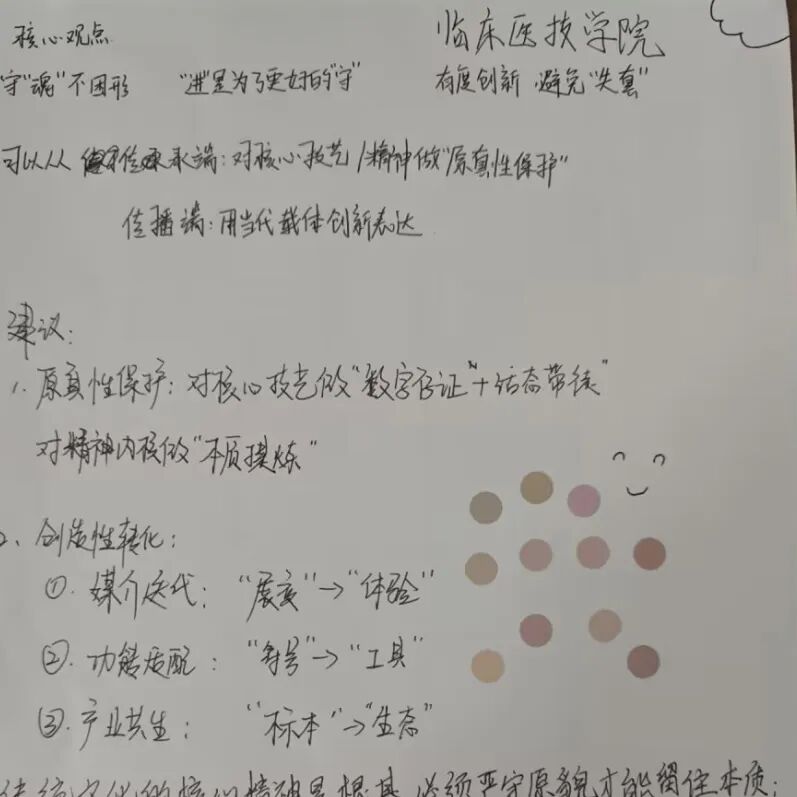 核心观点
临床医技学院
守"魂"不困形 "进"是为了更好的"守" 有度创新 避免"失真"
可以从 传承端:对核心技艺/精神做"原真性保护"
传播端:用当代载体创新表达
建议:
1. 原真性保护:对核心技艺做"数字存证"+"活态带徒"
对精神内核做"本质提炼"
2、创造性转化:
①. 媒介迭代:"展演"→"体验"
②. 功能适配:"符号"→"工具"
③. 产业共生:"标本"→"生态"
传统文化的核心精神是根基,必须严守原貌才能留住本质;